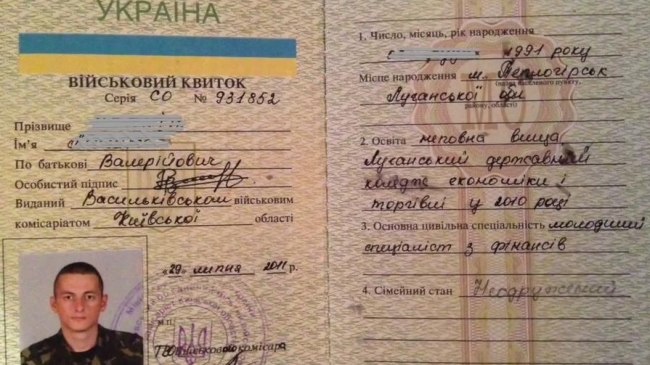 УКРАЇНА
ВІЙСЬКОВИЙ КВИТОК
Серія СО № 931852
Прізвище
Ім'я
По батькові Валерійович
Особистий підпис
Виданий Васильківським військовим
комісаріатом Київської області
«29» липня 2011 р.
М.П.
1. Число, місяць, рік народження
1991 року
Місце народження м. Теплогірськ
(назва населеного пункту,
Луганської обл
району, області)
2. Освіта неповна вища,
Луганський державний
коледж економіки і
торгівлі у 2010 році
3. Основна цивільна спеціальність молодший
спеціаліст з фінансів
4. Сімейний стан Неодружений